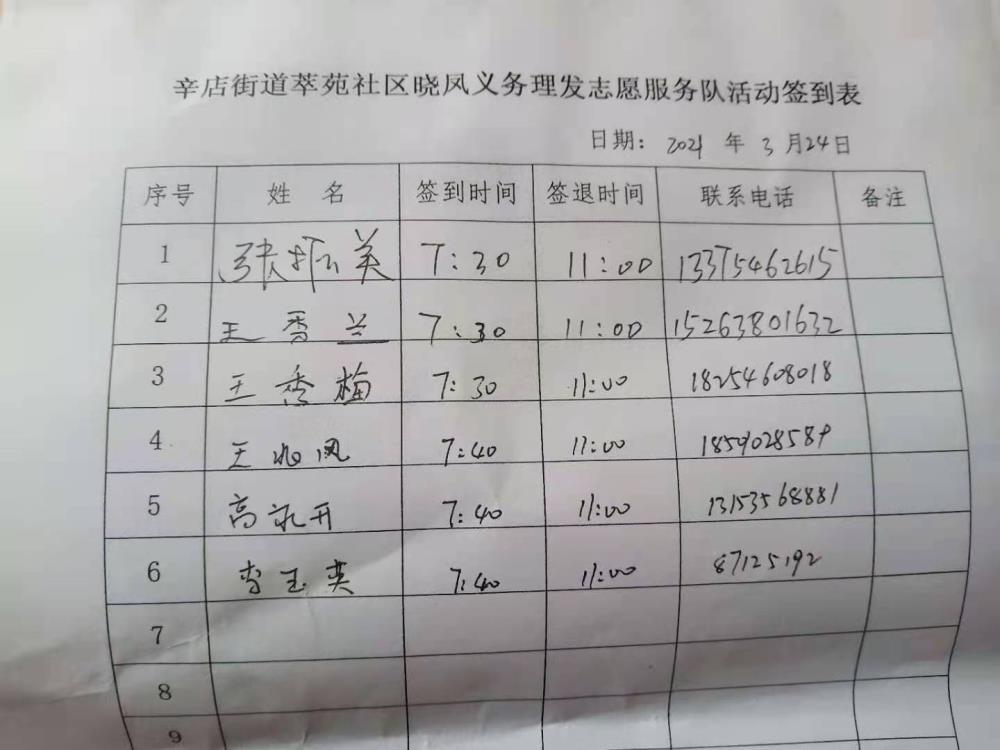 辛店街道萃苑社区晓凤义务理发志愿服务队活动签到表
日期: 2021 年 3 月24日
序号 姓 名 签到时间 签退时间 联系电话 备注
1 张振美 7:30 11:00 13375462615
2 王香兰 7:30 11:00 15263801632
3 王秀梅 7:30 11:00 18254608018
4 王兆凤 7:40 11:00
5 高永开 7:40 11:00 13153568881
6 李玉英 7:40 11:00 87125192
7
8
9